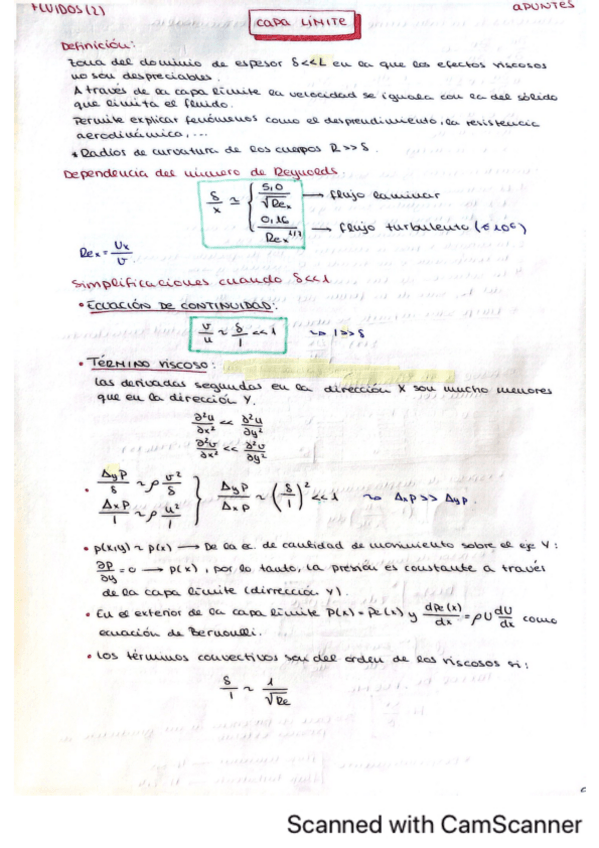 FLUIDOS(2)
APUNTES
CAPA LÍMITE
Definición:
Zona del dominio de espesor δ<<L en la que los efectos viscosos
no son despreciables.
A través de la capa límite la velocidad se iguala con la del sólido
que limita el fluido.
Permite explicar fenómenos como el desprendimiento, la resistencia
aerodinámica, ...
* Radios de curvatura de los cuerpos R >> δ.
Dependencia del número de Reynolds
δ/x ≃ { 5,0/√Rex → flujo laminar
0,16/Rex^1/7 → flujo turbulento
Rex = Ux/υ
Simplificaciones cuando δ<<1
• ECUACIÓN DE CONTINUIDAD:
v/u ~ δ/l << 1 ~> l>>δ
• TÉRMINO VISCOSO:
Las derivadas segundas en la dirección X son mucho menores
que en la dirección Y.
∂²u/∂x² << ∂²u/∂y²
∂²v/∂x² << ∂²v/∂y²
• ΔyP/δ ~ ρ v²/δ
ΔxP/l ~ ρ u²/l } ΔyP/ΔxP ~ (δ/l)² << 1 ~> ΔxP >> ΔyP.
• p(x,y) ~ p(x) → De la ec. de cantidad de movimiento sobre el eje Y:
∂p/∂y = 0 → p(x), por lo tanto, la presión es constante a través
de la capa límite (dirrección Y).
• En el exterior de la capa límite P(x) = Pe(x) y dPe(x)/dx = ρU dU/dx como
ecuación de Bernoulli.
• Los términos convectivos son del orden de los viscosos si:
δ/l ~ 1/√Re
Scanned with CamScanner